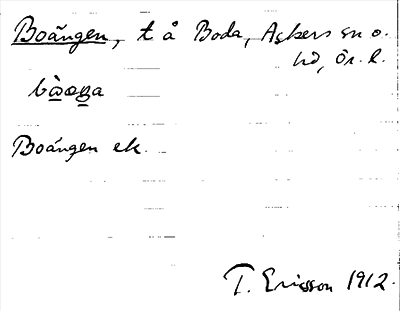 Boängen, t å Boda, Askers sn o.
hd, Ör. l.
Boängen ek.
T. Ericsson 1912.